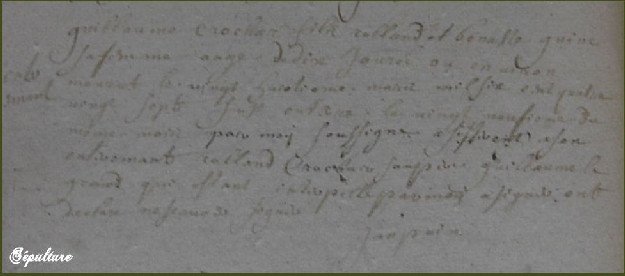 guillaume crochar filz rolland et bonasse guine
sa femme age de dix jours ou environ
mourut le vingt huictieme mars mil six cent quatre
vingt sept fust enterre le vingt neufieme du
mesme mois par moy soussigne assistants a son
enterement rolland crochar son pere guillaume le
grand qui estant interpelle par moy a signer ont
declare ne scavoir signer
Sépulture